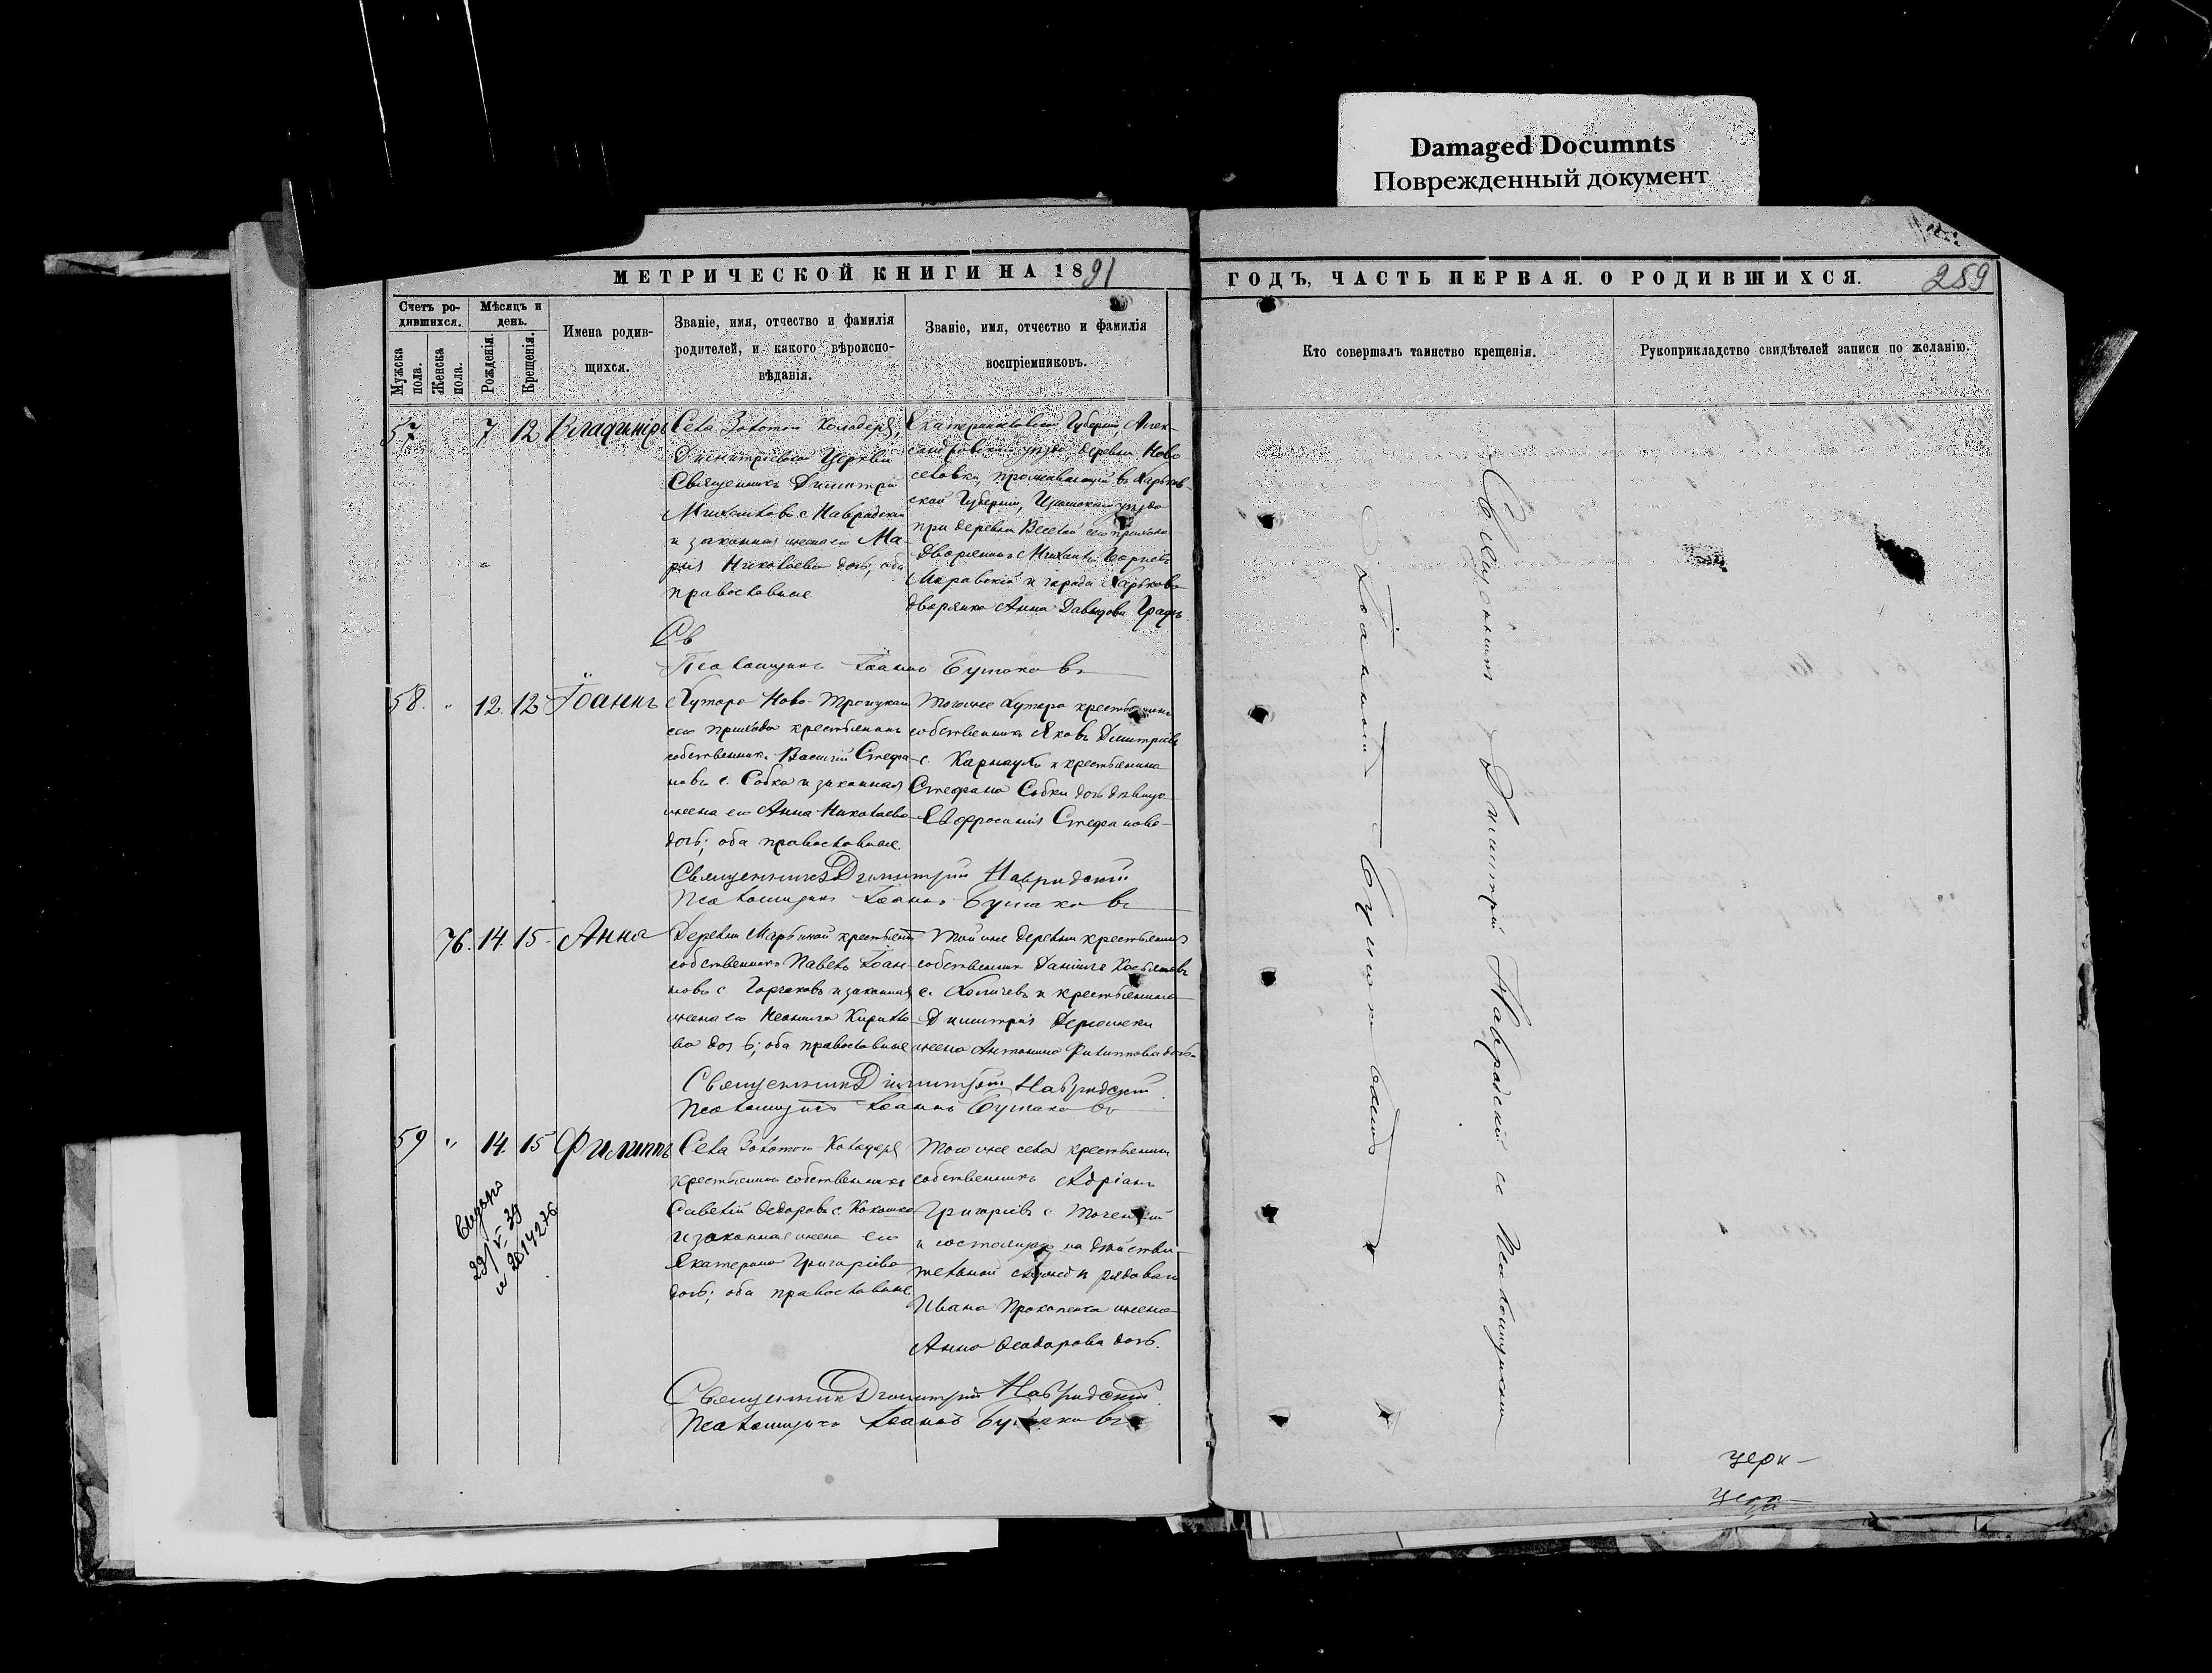 Damaged Documnts
Поврежденный документ
МЕТРИЧЕСКОЙ КНИГИ НА 1891
ГОДЪ, ЧАСТЬ ПЕРВАЯ. О РОДИВШИХСЯ.
259
Счетъ ро-
дившихся.
Мужска
пола.
Женска
пола.
Мѣсяцъ и
день.
Рожденія.
Крещенія.
Имена родив-
щихся.
Званіе, имя, отчество и фамилія
родителей, и какого вѣроиспо-
вѣданія.
Званіе, имя, отчество и фамилія
воспріемниковъ.
Кто совершалъ таинство крещенія.
Рукоприкладство свидѣтелей записи по желанію.
57 7 12 Владиміръ
Села Золотой Колодезь,
Димитріевской Церкви
Священникъ Димитрій
Михаиловъ с. Навродскій
и законная жена его Ма-
рія Николаева дочь, оба
православные
Екатеринославской Губерніи, Алек-
сандровскаго уѣзда, деревни Ново
селовки, проживающій въ Харьков-
ской Губерніи, Изюмскаго уѣзда
при деревни Веселой сего прихода
дворянинъ Михаилъ
и города Харькова
дворянка Анна Давыдова
Св
Псаломщикъ Іоаннъ Бутаковъ
58. " 12. 12 Іоаннъ
Хутора Ново-Троицкаго
сего прихода крестьянинъ
собственникъ Василій Стефа-
новъ с. Собка и законная
жена его Анна Николаева
дочь; оба православные.
Тогоже Хутора крестьянинъ
собственникъ Яковъ Димитріевъ
с. Карнаухъ и крестьянина
Стефана Собки дочь дѣвица
Евфросинія Стефанова
Священникъ Димитрій Навродскій
Псаломщикъ Іоаннъ Бутаковъ
76. 14. 15 Анна
Деревни Марьиной крестьянинъ
собственникъ Павелъ Іоан-
новъ с. Горчаковъ и законная
жена его Неонила Кирило
ва дочь; оба православные
Той же деревни крестьянинъ
собственникъ Даніилъ
с. и крестьянина
Димитрія
жена Антонина Филиппова дочь.
Священникъ Димитрій Навродскій
Псаломщикъ Іоаннъ Бутаковъ
59 " 14. 15 Филиппъ
Села Золотой Колодезь
крестьянинъ собственникъ
Савелій Ѳедоровъ с. Кокошко
и законная жена его
Екатерина Григоріева
дочь; оба православные.
Того же села крестьянинъ
собственникъ Адріанъ
Григоріевъ с.
и состоящаго на дѣйстви-
тельной службѣ рядоваго
Ивана Прокопенка жена
Анна Ѳеодорова дочь.
29/V-39
Священникъ Димитрій Навродскій
Псаломщикъ Іоаннъ Бутаковъ
Священникъ Димитрій Навродскій съ Псаломщикомъ
Іоанномъ Бутаковымъ
церк-